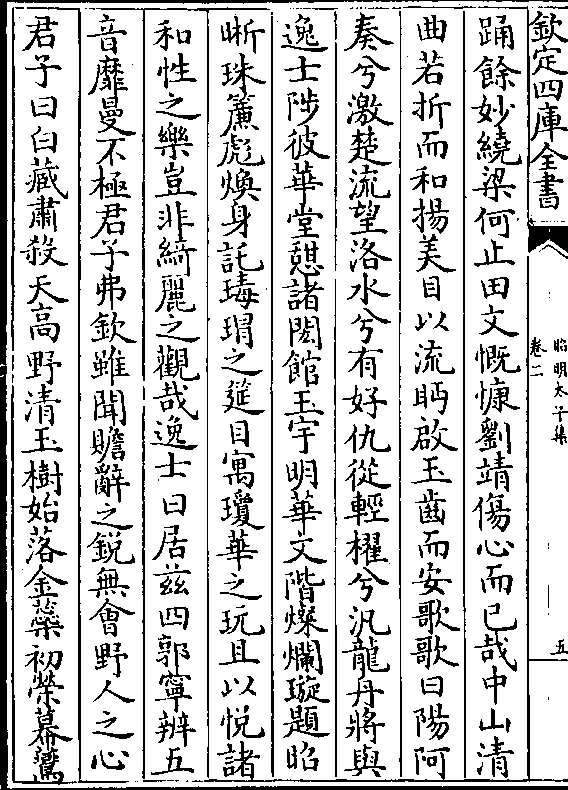 欽定四庫全書
昭明太子集
卷二
五
踊餘妙繞梁何止田文慨慷劉靖傷心而已哉中山清
曲若折而和揚美目以流眄啟玉齒而安歌歌曰陽阿
奏兮激楚流望洛水兮有好仇從輕櫂兮汎龍丹將與
逸士陟彼華堂憇諸閎館玉宇明華文階燦爛璇題昭
晰珠簾彪煥身託瑇瑁之筵目寓瓊華之玩且以悦諸
和性之樂豈非綺麗之觀哉逸士曰居兹四郭寧辨五
音靡曼不極君子弗欽雖聞贍辭之鋭無會野人之心
君子曰白藏肅殺天高野清玉樹始落金蘂初榮幕鷰